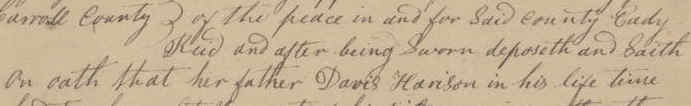 Carroll County } of the peace in and for Said County Eady
Kud and after being Sworn deposeth and Saith
on oath that her father Davis Harison in his life time